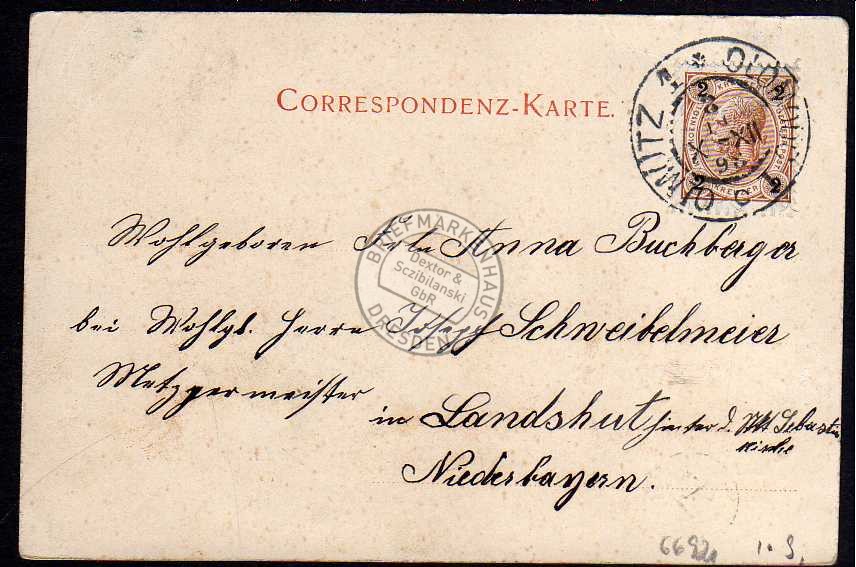 CORRESPONDENZ-KARTE.
OLMÜTZ 1 * OLOMOUC 1
XII
98
2 2
2 KREUZER 2
BRIEFMARKENHAUS
Dextor &
Sczibilanski
GbR
DRESDEN
Wohlgeboren Frln Anna Buchberger
bei Wohlgb. Herrn Josef Schweibelmeier
Metzgermeister
in Landshut hinter d. Skt Sebastian
Kirche
Niederbayern.